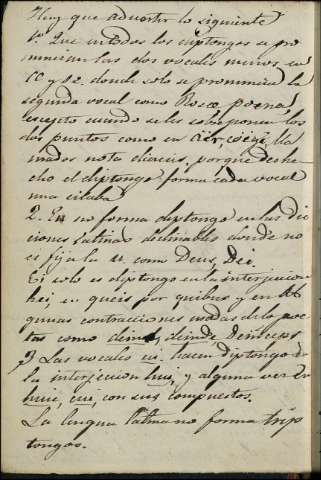 Hay que advertir lo siguiente
1º Que en todos los diptongos se pro
nuncian las dos vocales menos en
Œ y Æ, donde solo se pronuncia la
segunda vocal como Rosæ, pœna,
escepto cuando se les sobreponen los
dos puntos como en aër, lla
mados nota diæresis, porque deshe
cho el diptongo forma cada vocal
una silaba
2. Eu no forma diptongo en las dic
ciones latinas declinables donde no
es fija la u como Deus, Dei.
Ei solo es diptongo en la interjeccion
hei, en queis por quibus y en al
gunas contracciones usadas de lo poe
tas como deinde, deinceps
3 Las vocales ui hacen diptongo en
la interjeccion hui, y alguna vez en
huic, cui, con sus compuestos.
La lengua latina no forma trip
tongos.